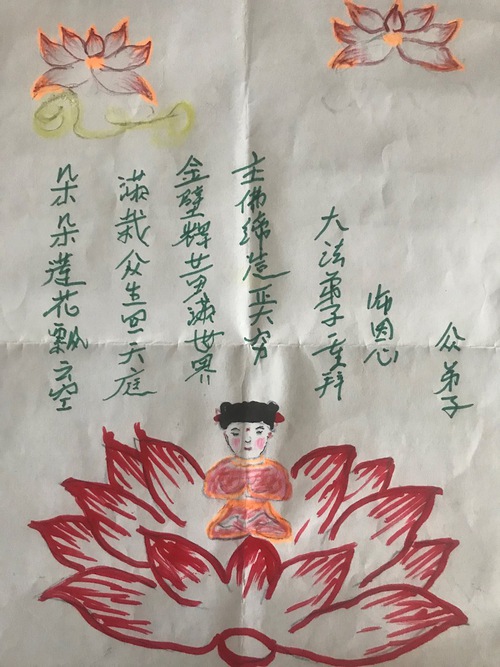 朵朵莲花飘云空
满载众生回天庭
金壁辉满世界
主佛缔造大穷
大法弟子重拜
师恩心
众弟子